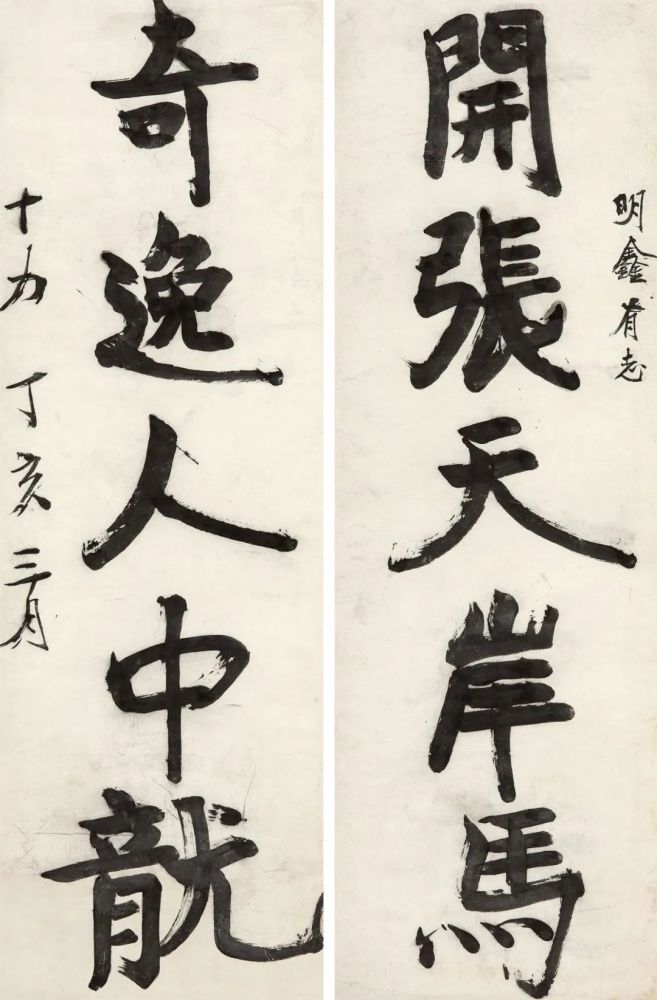 明鑫有志
開張天岸馬
奇逸人中龍
十力 丁亥三月